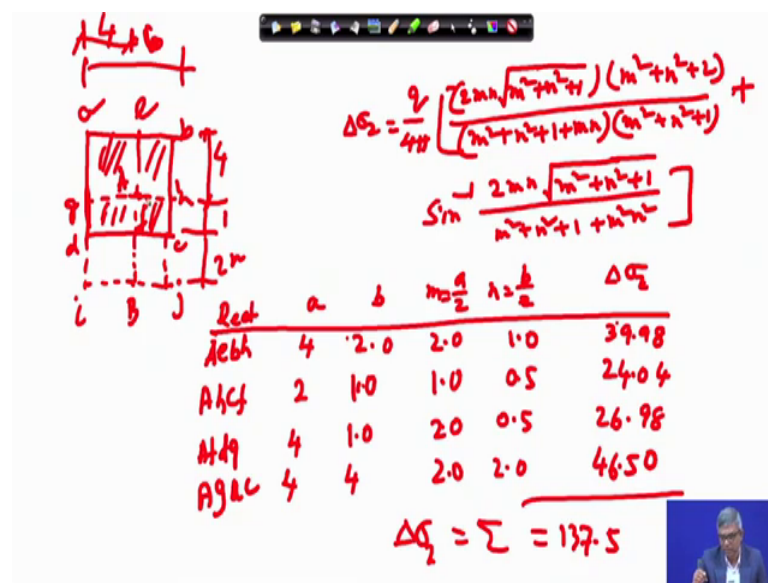 4 6
a e b
4
g A h
1
d f c
2m
i B j
Δσz = q/4π [ (2mn√m²+n²+1)(m²+n²+2) / (m²+n²+1+mn)(m²+n²+1) +
Sin⁻¹ 2mn√m²+n²+1 / m²+n²+1+m²n² ]
Rect a b m=a/z n=b/z Δσz
Aebh 4 2.0 2.0 1.0 39.98
Ahcf 2 1.0 1.0 0.5 24.04
Afdg 4 1.0 20 0.5 26.98
Agae 4 4 2.0 2.0 46.50
Δσz = Σ = 137.5